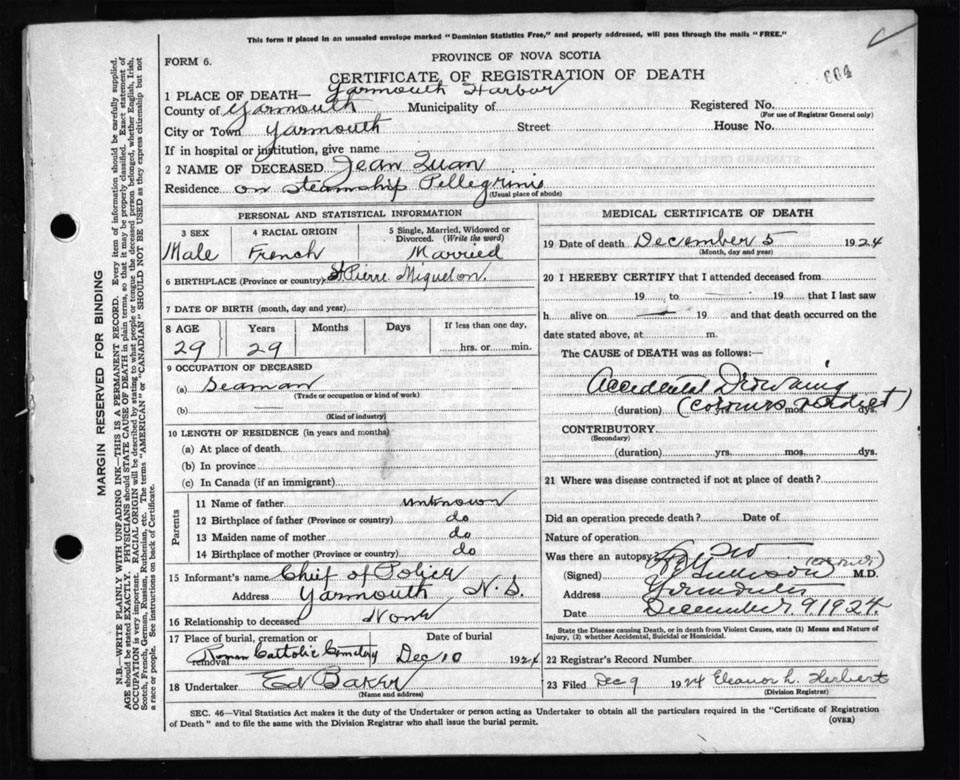 This form if placed in an unsealed envelope marked "Dominion Statistics Free," and properly addressed, will pass through the mails "FREE."
FORM 6.
PROVINCE OF NOVA SCOTIA
CERTIFICATE OF REGISTRATION OF DEATH
1 PLACE OF DEATH— Yarmouth Harbor
County of Yarmouth Municipality of Registered No.
(For use of Registrar General only)
City or Town Yarmouth Street House No.
If in hospital or institution, give name
2 NAME OF DECEASED Jean
Residence on Steamship Pellegrinis
(Usual place of abode)
PERSONAL AND STATISTICAL INFORMATION
3 SEX 4 RACIAL ORIGIN 5 Single, Married, Widowed or Divorced. (Write the word)
Male French Married
6 BIRTHPLACE (Province or country) St Pierre Miquelon.
7 DATE OF BIRTH (month, day and year)
8 AGE Years Months Days If less than one day,
29 29 hrs. or min.
9 OCCUPATION OF DECEASED
(a) Seaman
(Trade or occupation or kind of work)
(b) —
(Kind of industry)
10 LENGTH OF RESIDENCE (in years and months)
(a) At place of death
(b) In province
(c) In Canada (if an immigrant)
Parents
11 Name of father unknown
12 Birthplace of father (Province or country) do
13 Maiden name of mother do
14 Birthplace of mother (Province or country) do
15 Informant's name Chief of Police
Address Yarmouth N.S.
16 Relationship to deceased None
17 Place of burial, cremation or removal Date of burial
Roman Cattolic Cemetery Dec 10 1924
18 Undertaker Ed Baker
(Name and address)
MEDICAL CERTIFICATE OF DEATH
19 Date of death December 5 1924
(Month, day and year)
20 I HEREBY CERTIFY that I attended deceased from
19 to 19 that I last saw
h alive on 19 and that death occurred on the
date stated above, at m.
The CAUSE OF DEATH was as follows:
Accidental Drowning
(duration) yrs. mos. dys.
CONTRIBUTORY
(Secondary)
(duration) yrs. mos. dys.
21 Where was disease contracted if not at place of death?
Did an operation precede death? Date of
Nature of operation
Was there an autopsy No
(Signed) M.D.
Address Yarmouth
Date December 9 1924
State the Disease causing Death, or in death from Violent Causes, state (1) Means and Nature of Injury, (2) whether Accidental, Suicidal or Homicidal.
22 Registrar's Record Number
23 Filed Dec 9 1924 Eleanor L. Herbert
(Division Registrar)
SEC. 46—Vital Statistics Act makes it the duty of the Undertaker or person acting as Undertaker to obtain all the particulars required in the "Certificate of Registration
of Death" and to file the same with the Division Registrar who shall issue the burial permit.
(OVER)
MARGIN RESERVED FOR BINDING
N.B.—WRITE PLAINLY WITH UNFADING INK—THIS IS A PERMANENT RECORD. Every item of information should be carefully supplied.
AGE should be stated EXACTLY. PHYSICIANS should STATE CAUSE OF DEATH in plain terms, so that it may be properly classified. Exact statement of
OCCUPATION is very important. RACIAL ORIGIN will be described by stating to what people or tongue the deceased person belonged, whether English, Irish,
Scotch, French, German, Russian, Ruthenian, etc. The terms "AMERICAN" or "CANADIAN" SHOULD NOT BE USED as they express citizenship but not
a race or people. See instructions on back of Certificate.